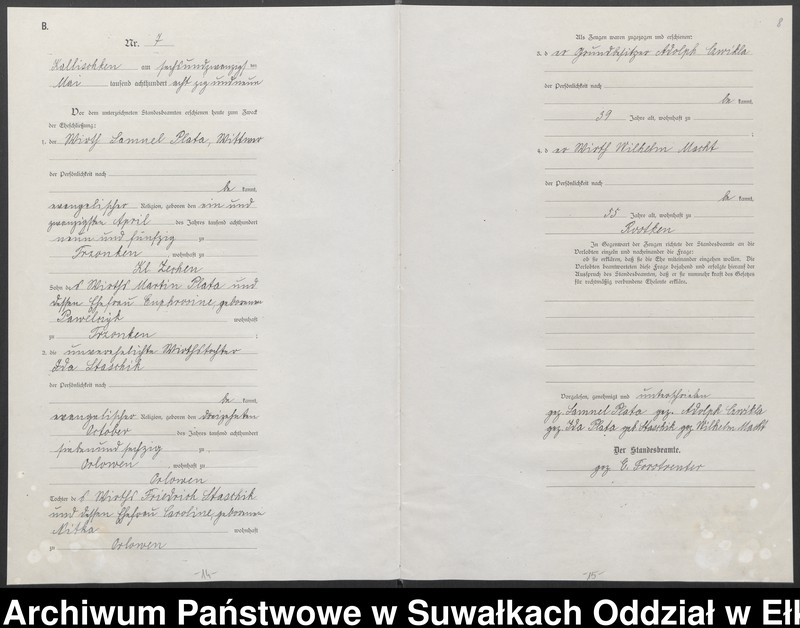 B.
Nr. 7
Kallischken am sechsundzwanzigsten
Mai tausend achthundert acht zig und neun
Vor dem unterzeichneten Standesbeamten erschienen heute zum Zweck
der Eheschließung:
1. der Wirth Samuel Plata, Wittwer
der Persönlichkeit nach
be kannt,
evangelischer Religion, geboren den ein und
zwanzigsten April des Jahres tausend achthundert
neun und fünfzig zu
Trzonken, wohnhaft zu
Kl Zechen
Sohn des Wirths Martin Plata und
dessen Ehefrau Euphrosine, geborenen
Pawelczyk wohnhaft
zu Trzonken ;
2. die unverehelichte Wirthstochter
Ida Staschik
der Persönlichkeit nach
be kannt,
evangelischer Religion, geboren den dreizehnten
October des Jahres tausend achthundert
siebenundsechzig zu
Orlowen, wohnhaft zu
Orlowen
Tochter des Wirths Friedrich Staschik
und dessen Ehefrau Caroline, geborenen
Mitka wohnhaft
zu Orlowen
-14-
8
Als Zeugen waren zugezogen und erschienen:
3. der Grundbesitzer Adolph Cwikla
der Persönlichkeit nach
be kannt,
39 Jahre alt, wohnhaft zu
;
4. der Wirth Wilhelm Macht
der Persönlichkeit nach
be kannt,
55 Jahre alt, wohnhaft zu
Rostken
In Gegenwart der Zeugen richtete der Standesbeamte an die
Verlobten einzeln und nacheinander die Frage:
ob sie erklären, daß sie die Ehe miteinander eingehen wollen. Die
Verlobten beantworteten diese Frage bejahend und erfolgte hierauf der
Ausspruch des Standesbeamten, daß er sie nunmehr kraft des Gesetzes
für rechtmäßig verbundene Eheleute erkläre.
Vorgelesen, genehmigt und unterschrieben
gez. Samuel Plata gez. Adolph Cwikla
gez. Ida Plata geb Staschik gez Wilhelm Macht
Der Standesbeamte.
gez E. Forstreuter
-15-
Archiwum Państwowe w Suwałkach Oddział w Ełk